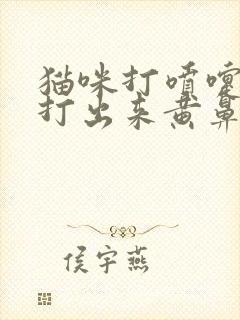 猫咪打喷嚏
打出来黄鼻
侯宇燕